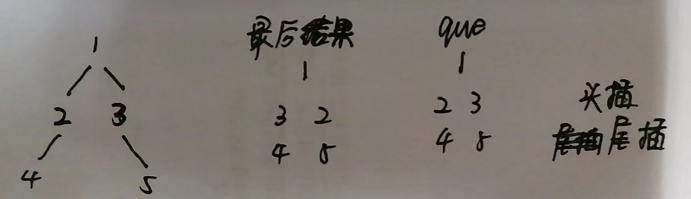 最后结果 que
1 1 1
2 3 3 2 2 3 头插
4 5 4 5 4 5 尾插